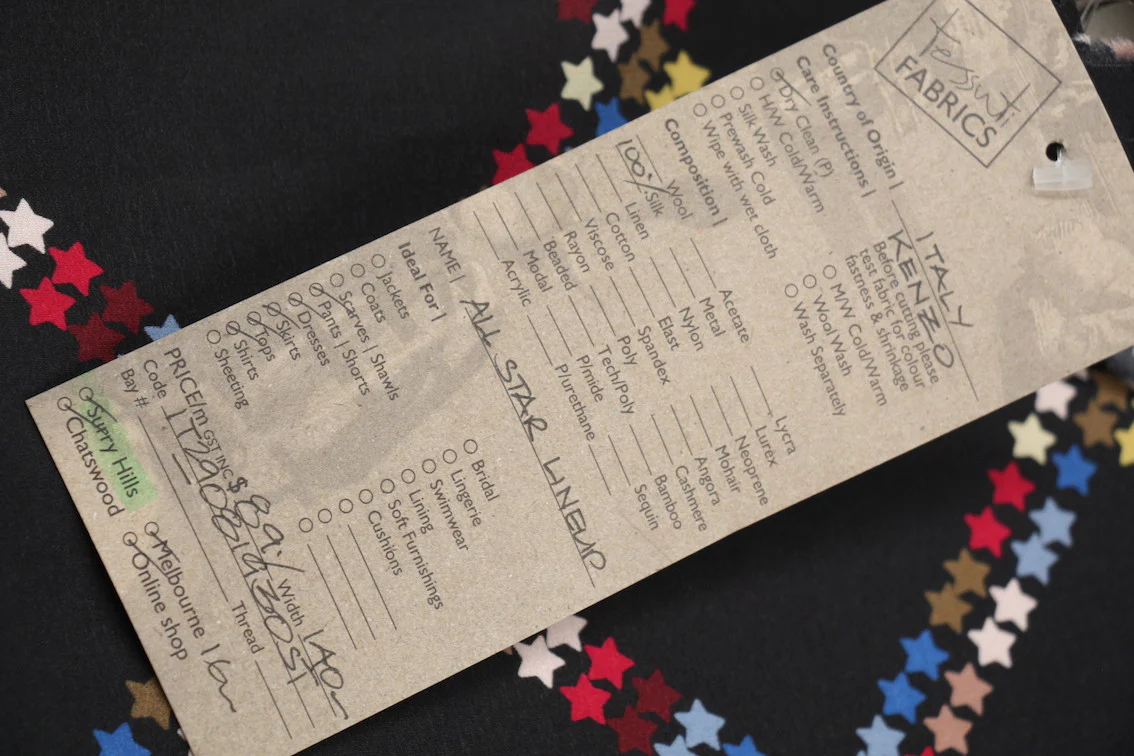 Tessuti
FABRICS
Country of Origin | ITALY
KENZO
Care Instructions |
Dry Clean (P)
H/W Cold/Warm
Silk Wash
Prewash Cold
Wipe with wet cloth
Before cutting please
test fabric for colour
fastness & shrinkage
M/W Cold/Warm
Wool Wash
Wash Separately
Composition |
Wool Acetate Lycra
100% Silk Metal Lurex
Linen Nylon Neoprene
Cotton Elast Mohair
Viscose Spandex Angora
Rayon Poly Cashmere
Beaded Tech/Poly Bamboo
Modal P/mide Sequin
Acrylic P/urethane
NAME | ALL STAR LINEUP
Ideal For |
Jackets Bridal
Coats Lingerie
Scarves | Shawls Swimwear
Pants | Shorts Lining
Dresses Soft Furnishings
Skirts Cushions
Tops
Shirts
Sheeting
PRICE/m GST INC $89./ Width 140
Code
Bay # Thread
Surry Hills Melbourne 16m
Chatswood Online shop